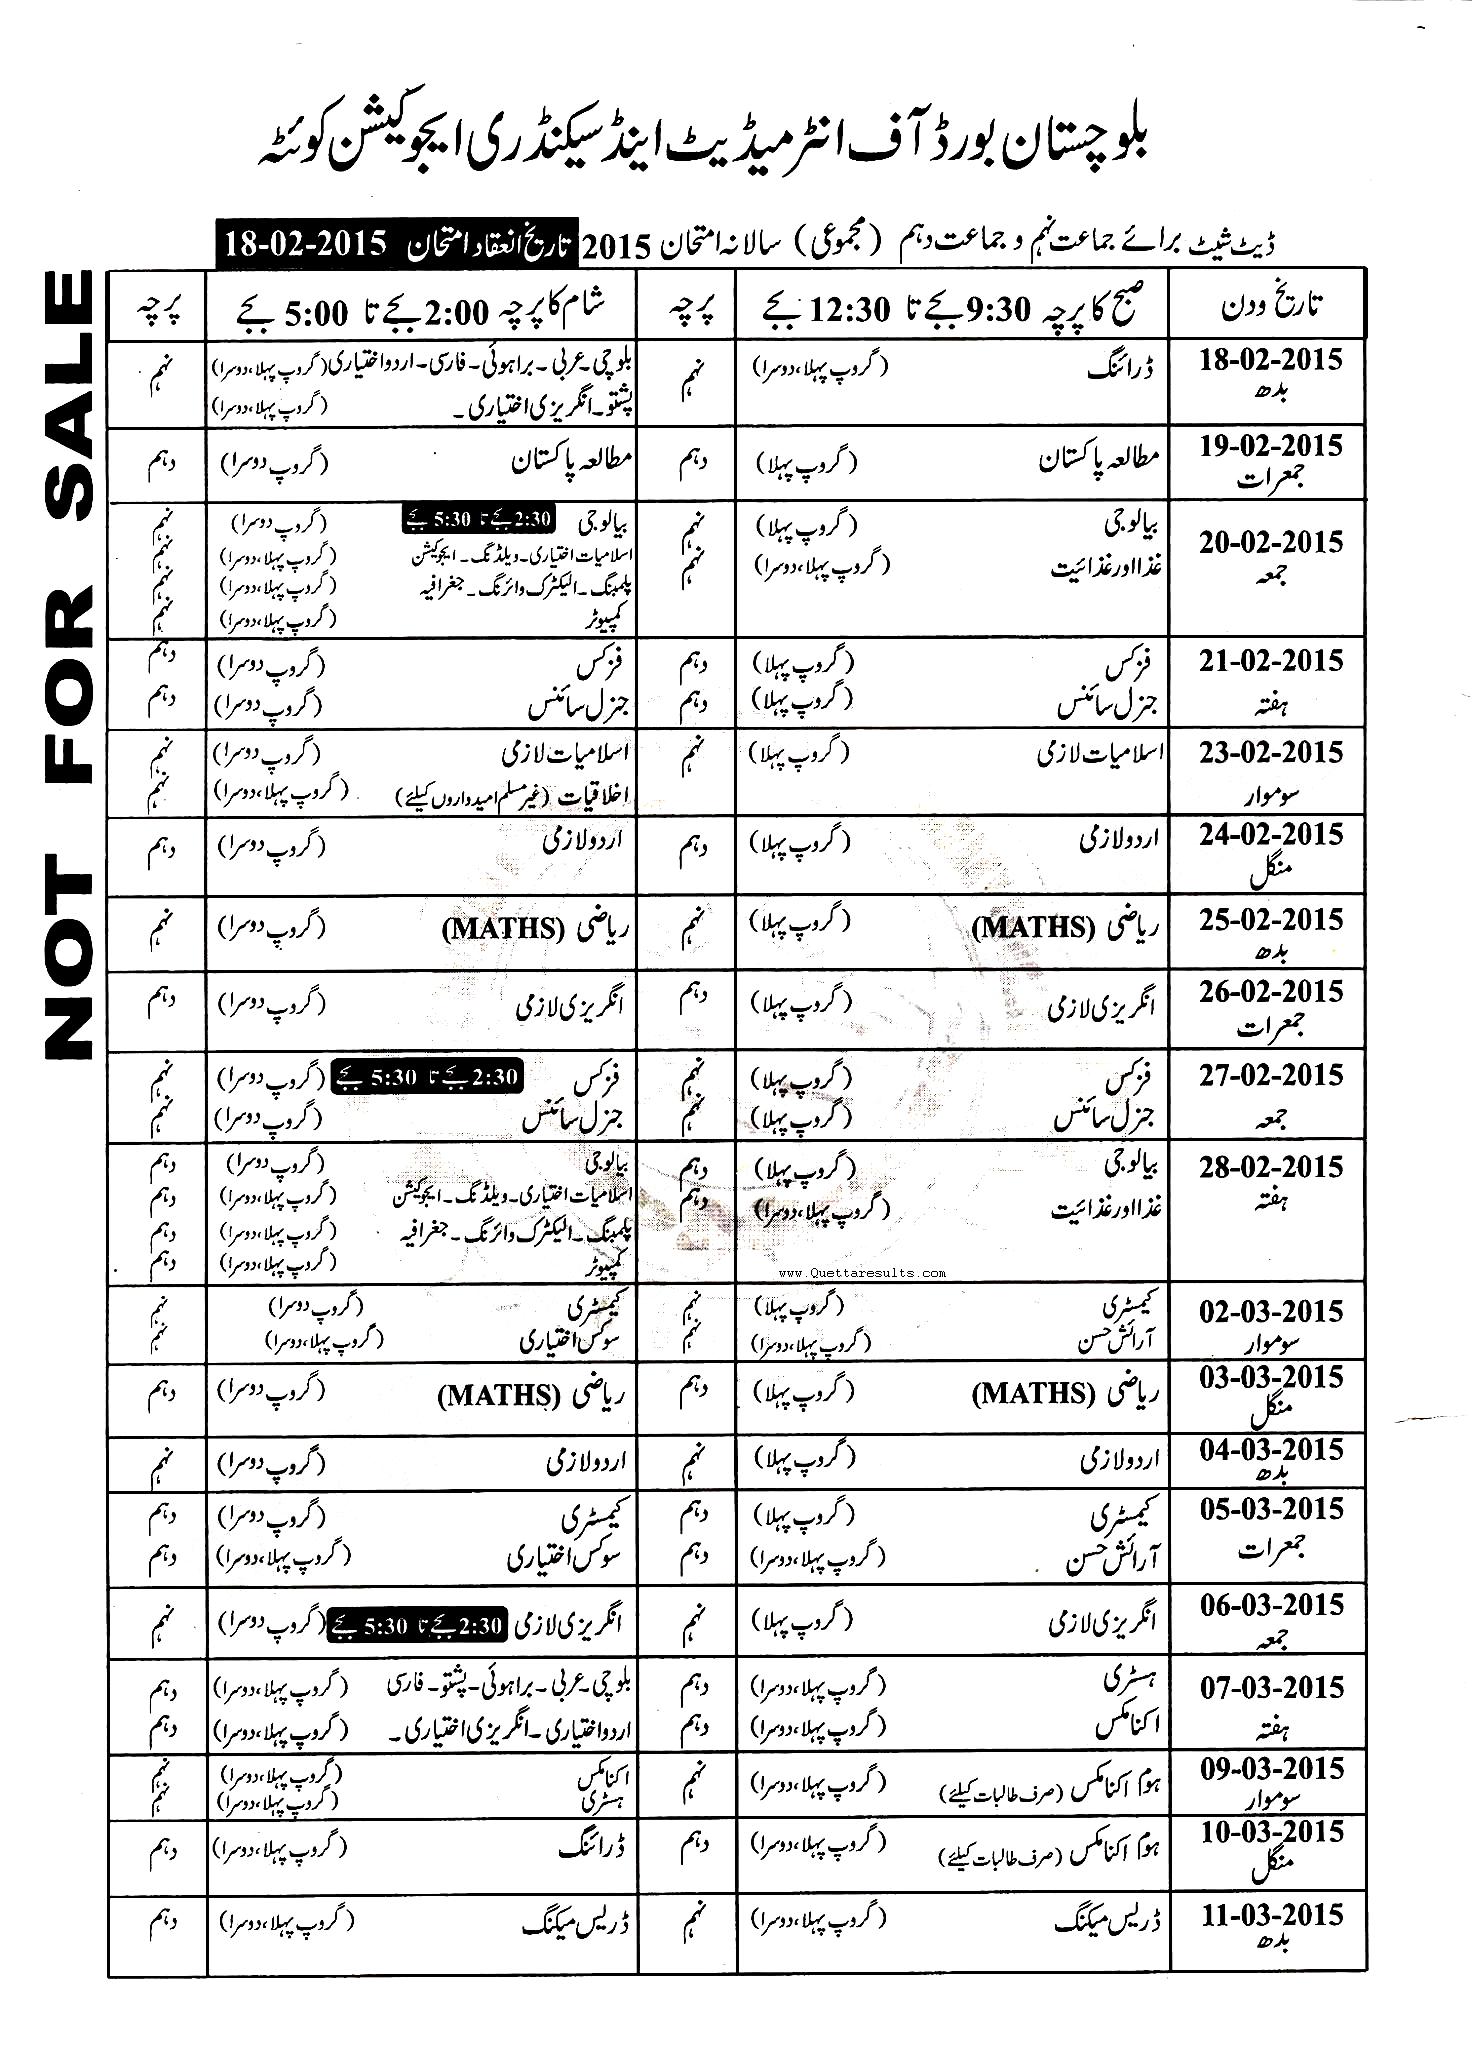 بلوچستان بورڈ آف انٹرمیڈیٹ اینڈ سیکنڈری ایجوکیشن کوئٹہ
ڈیٹ شیٹ برائے جماعت نہم و جماعت دہم (مجموعی) سالانہ امتحان 2015 تاریخ انعقاد امتحان 18-02-2015
NOT FOR SALE
تاریخ ودن صبح کا پرچہ 9:30 بجے تا 12:30 بجے پرچہ شام کا پرچہ 2:00 بجے تا 5:00 بجے پرچہ
18-02-2015 ڈرائنگ (گروپ پہلا،دوسرا) نہم بلوچی۔عربی۔براہوئی۔فارسی۔اردو اختیاری (گروپ پہلا،دوسرا) نہم
بدھ پشتو۔انگریزی اختیاری۔ (گروپ پہلا،دوسرا)
19-02-2015 مطالعہ پاکستان (گروپ پہلا) دہم مطالعہ پاکستان (گروپ دوسرا) دہم
جمعرات
20-02-2015 بیالوجی (گروپ پہلا) نہم بیالوجی 2:30 بجے تا 5:30 بجے (گروپ دوسرا) نہم
جمعہ غذا اور غذائیت (گروپ پہلا،دوسرا) نہم اسلامیات اختیاری۔ویلڈنگ۔ایجوکیشن (گروپ پہلا،دوسرا) نہم
پلمبنگ۔الیکٹرک وائرنگ۔جغرافیہ (گروپ پہلا،دوسرا) نہم
کمپیوٹر (گروپ پہلا،دوسرا) نہم
21-02-2015 فزکس (گروپ پہلا) دہم فزکس (گروپ دوسرا) دہم
ہفتہ جنرل سائنس (گروپ پہلا) دہم جنرل سائنس (گروپ دوسرا) دہم
23-02-2015 اسلامیات لازمی (گروپ پہلا) نہم اسلامیات لازمی (گروپ دوسرا) نہم
سوموار اخلاقیات (غیر مسلم امیدواروں کیلئے) (گروپ پہلا،دوسرا) نہم
24-02-2015 اردو لازمی (گروپ پہلا) دہم اردو لازمی (گروپ دوسرا) دہم
منگل
25-02-2015 ریاضی (MATHS) (گروپ پہلا) نہم ریاضی (MATHS) (گروپ دوسرا) نہم
بدھ
26-02-2015 انگریزی لازمی (گروپ پہلا) دہم انگریزی لازمی (گروپ دوسرا) دہم
جمعرات
27-02-2015 فزکس (گروپ پہلا) نہم فزکس 2:30 بجے تا 5:30 بجے (گروپ دوسرا) نہم
جمعہ جنرل سائنس (گروپ پہلا) نہم جنرل سائنس (گروپ دوسرا) نہم
28-02-2015 بیالوجی (گروپ پہلا) دہم بیالوجی (گروپ دوسرا) دہم
ہفتہ غذا اور غذائیت (گروپ پہلا،دوسرا) دہم اسلامیات اختیاری۔ویلڈنگ۔ایجوکیشن (گروپ پہلا،دوسرا) دہم
پلمبنگ۔الیکٹرک وائرنگ۔جغرافیہ (گروپ پہلا،دوسرا) دہم
کمپیوٹر (گروپ پہلا،دوسرا) دہم
www.Quettaresults.com
02-03-2015 کیمسٹری (گروپ پہلا) نہم کیمسٹری (گروپ دوسرا) نہم
سوموار آرائش حسن (گروپ پہلا،دوسرا) نہم سوکس اختیاری (گروپ پہلا،دوسرا) نہم
03-03-2015 ریاضی (MATHS) (گروپ پہلا) دہم ریاضی (MATHS) (گروپ دوسرا) دہم
منگل
04-03-2015 اردو لازمی (گروپ پہلا) نہم اردو لازمی (گروپ دوسرا) نہم
بدھ
05-03-2015 کیمسٹری (گروپ پہلا) دہم کیمسٹری (گروپ دوسرا) دہم
جمعرات آرائش حسن (گروپ پہلا،دوسرا) دہم سوکس اختیاری (گروپ پہلا،دوسرا) دہم
06-03-2015 انگریزی لازمی (گروپ پہلا) نہم انگریزی لازمی 2:30 بجے تا 5:30 بجے (گروپ دوسرا) نہم
جمعہ
07-03-2015 ہسٹری (گروپ پہلا،دوسرا) دہم بلوچی۔عربی۔براہوئی۔پشتو۔فارسی (گروپ پہلا،دوسرا) دہم
ہفتہ اکنامکس (گروپ پہلا،دوسرا) دہم اردو اختیاری۔انگریزی اختیاری۔ (گروپ پہلا،دوسرا) دہم
09-03-2015 ہوم اکنامکس (صرف طالبات کیلئے) (گروپ پہلا،دوسرا) نہم اکنامکس (گروپ پہلا،دوسرا) نہم
سوموار ہسٹری (گروپ پہلا،دوسرا) نہم
10-03-2015 ہوم اکنامکس (صرف طالبات کیلئے) (گروپ پہلا،دوسرا) دہم ڈرائنگ (گروپ پہلا،دوسرا) دہم
منگل
11-03-2015 ڈریس میکنگ (گروپ پہلا،دوسرا) نہم ڈریس میکنگ (گروپ پہلا،دوسرا) دہم
بدھ